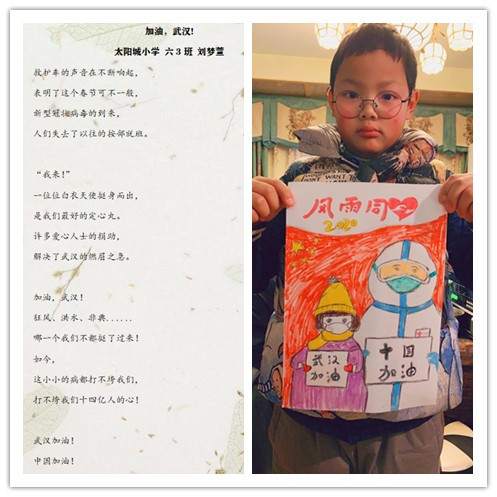 加油，武汉!
太阳城小学 六3班 刘梦萱
救护车的声音在不断响起，
表明了这个春节可不一般，
新型冠状病毒的到来，
人们失去了以往的按部就班。
“我来!”
一位位白衣天使挺身而出，
是我们最好的定心丸。
许多爱心人士的捐助，
解决了武汉的燃眉之急。
加油，武汉!
狂风、洪水、非典......
哪一个我们不都挺了过来!
如今，
这小小的病都打不垮我们，
打不垮我们十四亿人的心!
武汉加油!
中国加油!
风雨同心
2020
武汉
加油
中国
加油